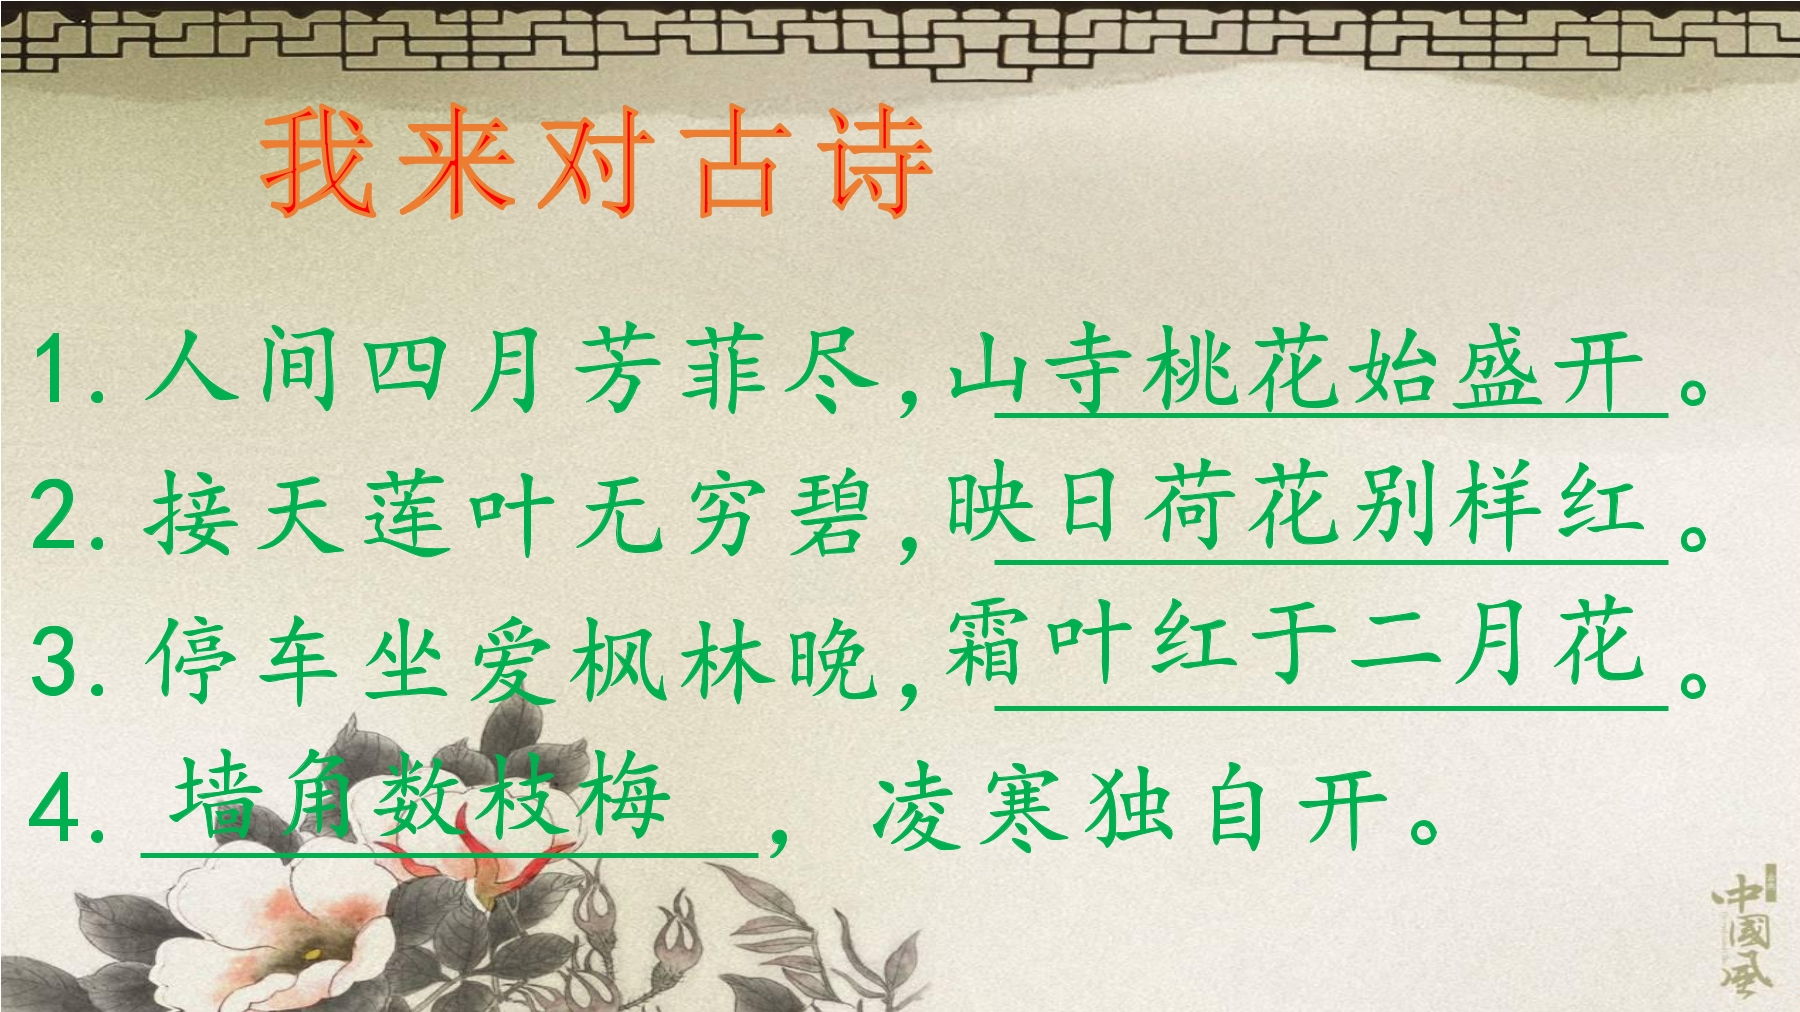 我来对古诗
1. 人间四月芳菲尽,山寺桃花始盛开。
2. 接天莲叶无穷碧,映日荷花别样红。
3. 停车坐爱枫林晚,霜叶红于二月花。
4. 墙角数枝梅,凌寒独自开。
中国风